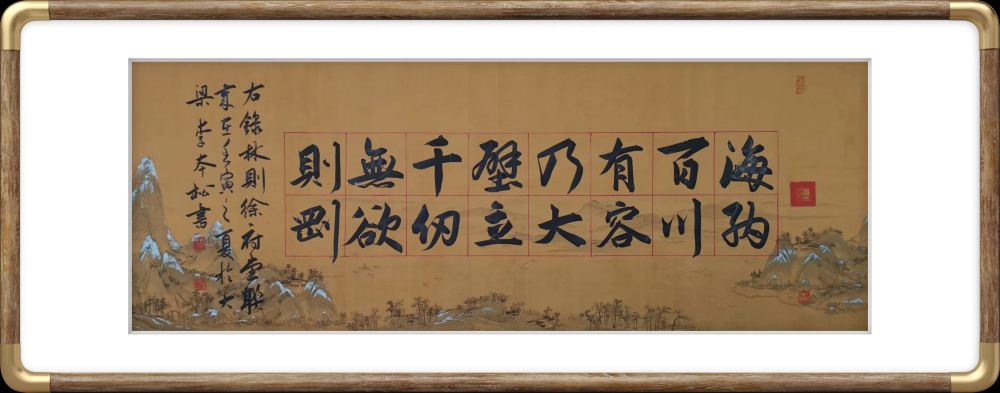 海納
百川
有容
乃大
壁立
千仞
無欲
則剛
右錄林則徐府堂聯
歲在壬寅之夏於大
梁 李本松書